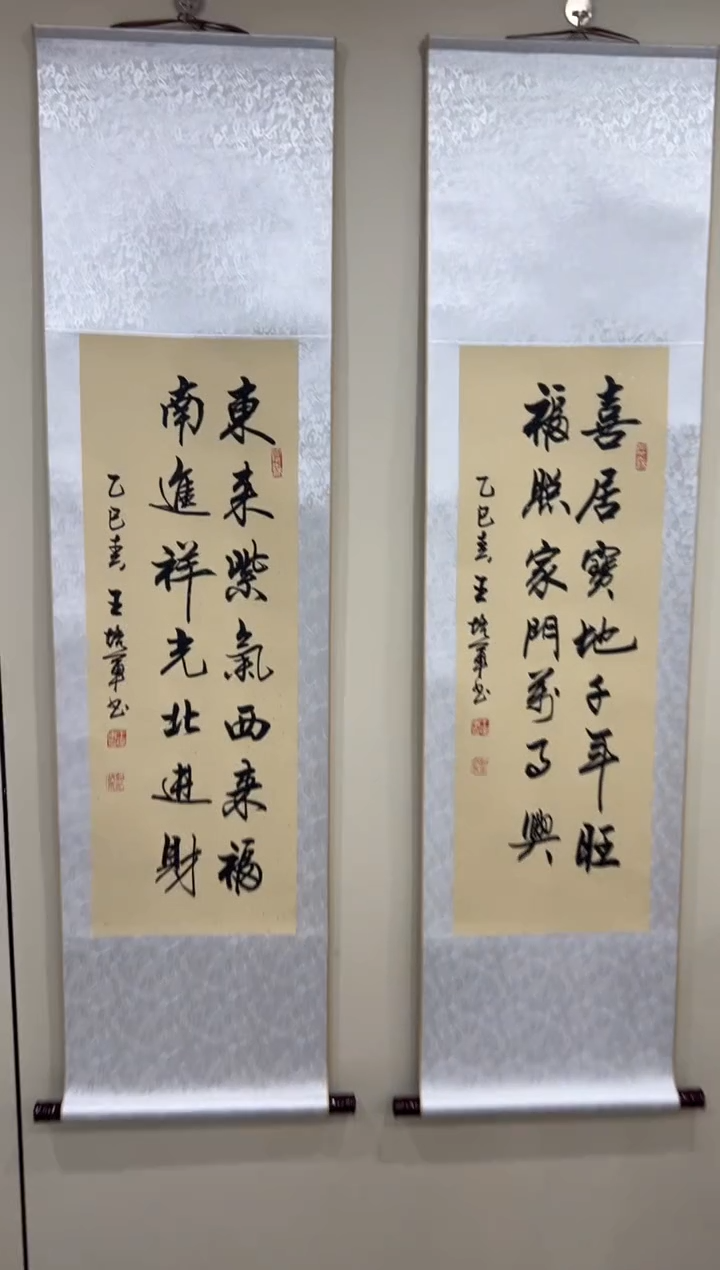 喜居寶地千年旺
福照家門萬事興
乙巳春 王培軍书
東来紫氣西来福
南進祥光北進財
乙巳春 王培軍书